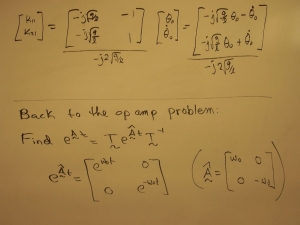 [K₁₁ K₂₁] = [-j√(g/l) -1; -j√(g/l) 1] / -j2√(g/l) [θ₀ θ̇₀] = [-j√(g/l) θ₀ - θ̇₀; -j√(g/l) θ₀ + θ̇₀] / -j2√(g/l)
Back to the op amp problem:
Find e^{At} = T e^{Ât} T⁻¹
e^{Ât} = [e^{ω₀t} 0; 0 e^{-ω₀t}] (Â = [ω₀ 0; 0 -ω₀])